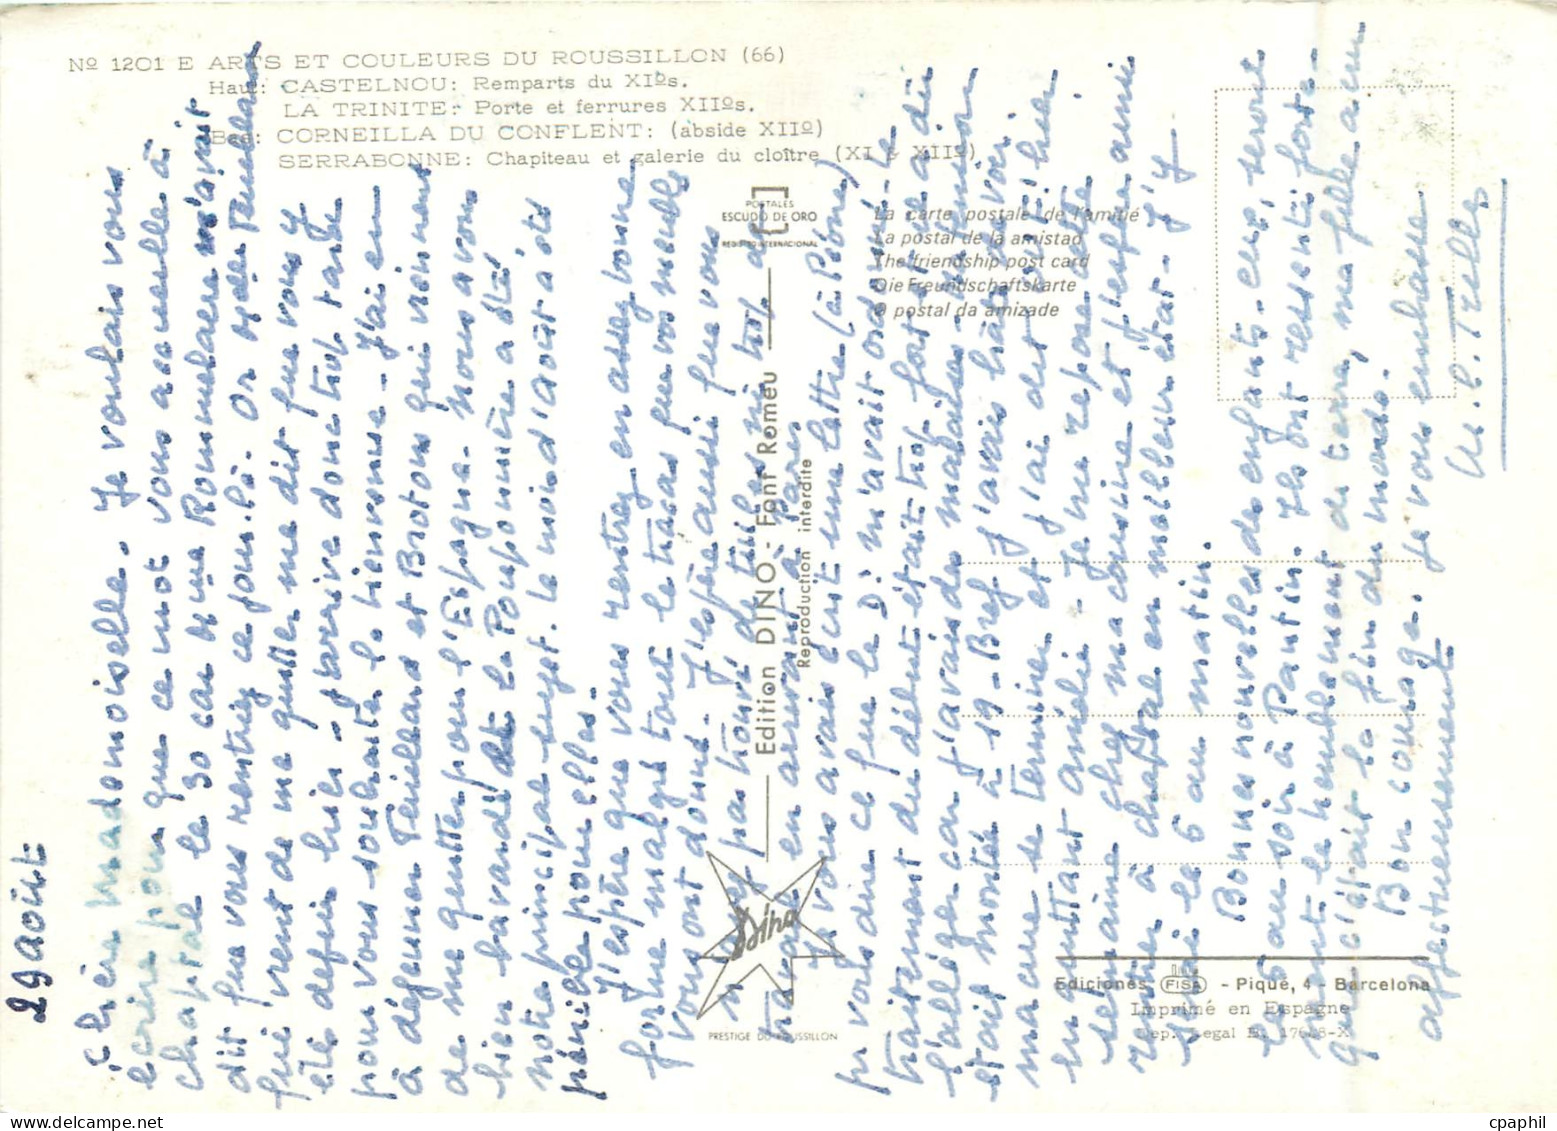 Nº 1201 E ARTS ET COULEURS DU ROUSSILLON (66)
Haut: CASTELNOU: Remparts du XIºs.
LA TRINITE: Porte et ferrures XIIºs.
Bas: CORNEILLA DU CONFLENT: (abside XIIº)
SERRABONNE: Chapiteau et galerie du cloître (XI & XIIº)
POSTALES
ESCUDO DE ORO
REGISTRO INTERNACIONAL
La carte postale de l'amitié
La postal de la amistad
The friendship post card
Die Freundschaftskarte
O postal da amizade
Edition DINO - Font Romeu
Reproduction interdite
Dino
PRESTIGE DU ROUSSILLON
Ediciones FISA - Piqué, 4 - Barcelona
Imprimé en Espagne
Dep. Legal B. 17608-X
29 août
Chère Mademoiselle. Je voulais vous
écrire pour que ce mot vous accueille à
chapitre le 30 car Mme m'avait
dit que vous rentriez ce jour-là. Or Melle Teuillard
qui vient de me quitter me dit que vous y
êtes depuis hier. J'arrive donc trop tard
pour vous souhaiter la bienvenue - J'ai eu
à déjeuner Teuillard et Brotons qui viennent
de me quitter pour l'Espagne. Nous avons
bien bavardé et la Pouponnière a été
notre principal sujet. Le mois d'août a été
pénible pour elles.
J'espère que vous rentrez en assez bonne
forme malgré tout le tracas que vos meubles
vous ont donné. J'espère aussi que vous
n'avez pas trouvé de tuiles ni trop de
travail en arrivant à Paris
Je vous avais écrit une lettre (à Piône)
pr vous dire ce que le Dr m'avait ordonné - Le
traitement du début était trop fort et il a dû
l'alléger car j'avais des malaises - ma tension
était montée à 19 - Bref j'avais hâte de voir
ma cure se terminer et j'ai dit ouf! hier
en quittant Amélie - Je me repose cette
semaine chez ma cousine et j'espère ainsi
rentrer à chapitre en meilleur état - J'y
serai le 6 au matin.
Bonnes nouvelles des enfants - eux, seront
le 5 au soir à Pantin. Ils ont ressenti forte-
ment le tremblement de terre, ma fille a cru
que c'était la fin du monde.
Bon courage. Je vous embrasse
affectueusement